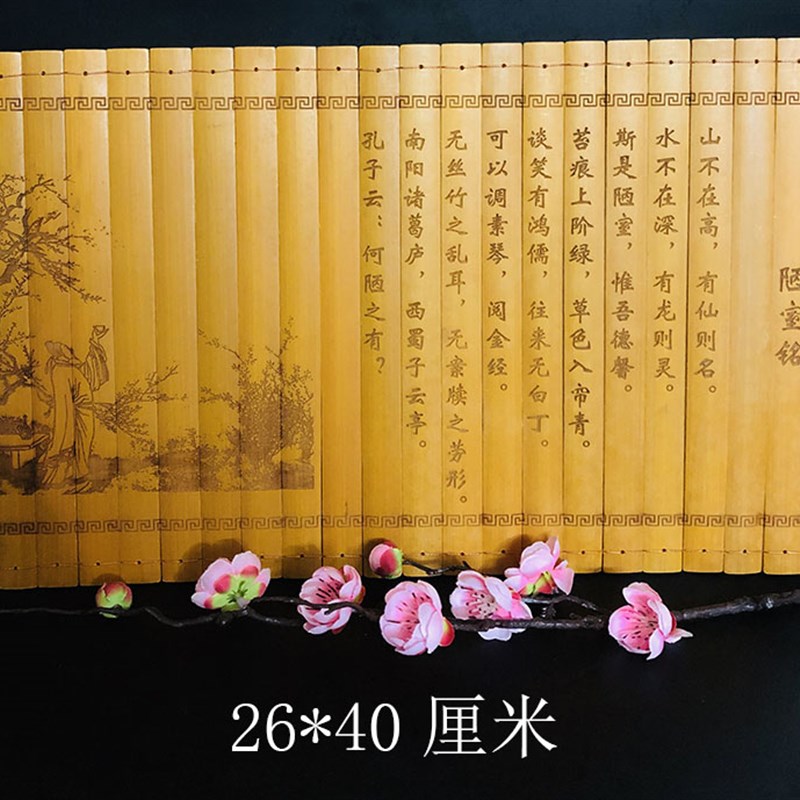 陋室铭
山不在高，有仙则名。
水不在深，有龙则灵。
斯是陋室，惟吾德馨。
苔痕上阶绿，草色入帘青。
谈笑有鸿儒，往来无白丁。
可以调素琴，阅金经。
无丝竹之乱耳，无案牍之劳形。
南阳诸葛庐，西蜀子云亭。
孔子云：何陋之有？
26*40 厘米